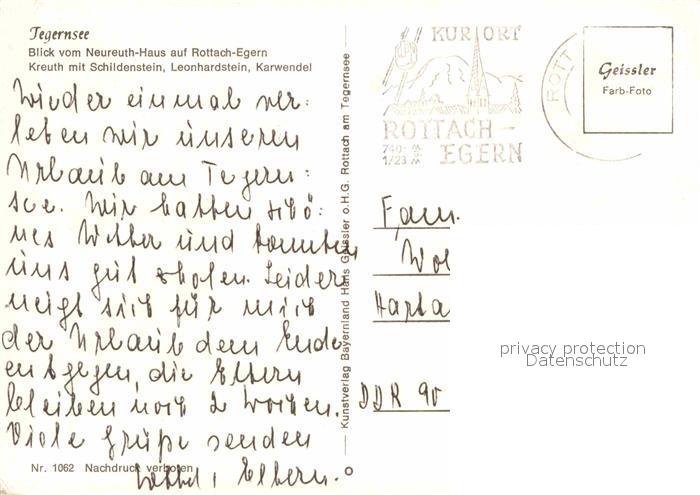 Tegernsee
Blick vom Neureuth-Haus auf Rottach-Egern
Kreuth mit Schildenstein, Leonhardstein, Karwendel
Wieder einmal ver:
leben wir unseren
Urlaub am Tegern:
see. Wir hatten schö:
nes Wetter und konnten
uns gut erholen. Leider
neigt sich für mich
der Urlaub dem Ende
entgegen, die Eltern
bleiben noch 2 Wochen.
Viele Grüße senden
Eltern.
Nr. 1062 Nachdruck verboten
Kunstverlag Bayernland Hans Geissler o.H.G. Rottach am Tegernsee
KURORT
ROTTACH-
EGERN
740-
ROTT
Geissler
Farb-Foto
Fam.
Wol
Harta
DDR 90
privacy protection
Datenschutz